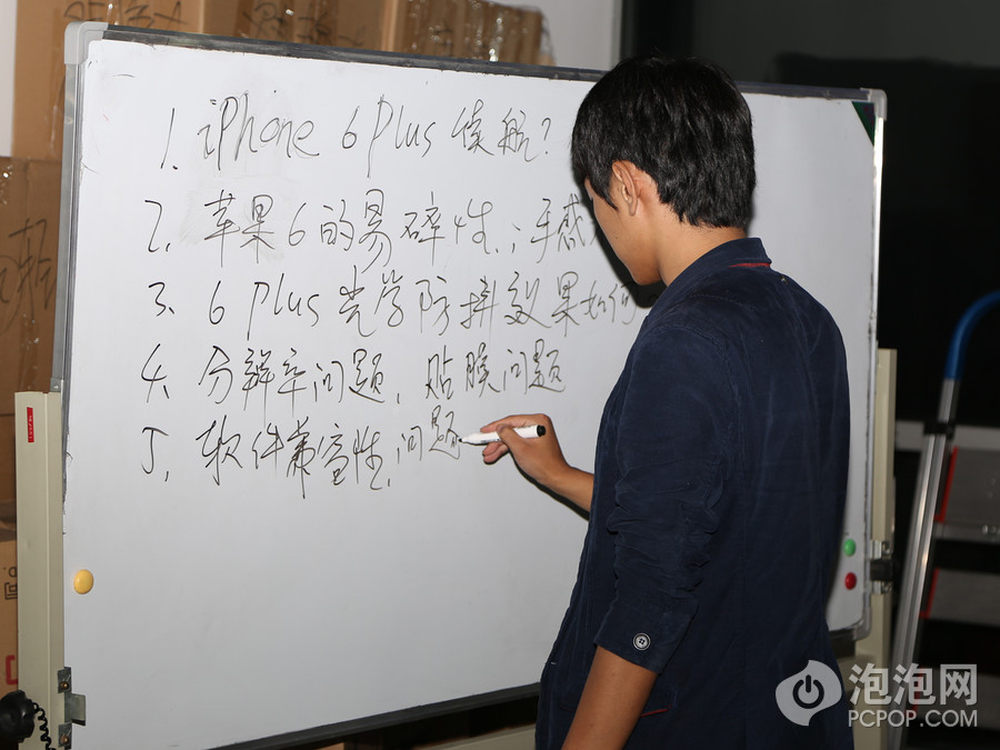 1. iPhone 6 Plus 续航?
2. 苹果6的易碎性.;手感
3. 6 Plus 光学防抖效果如何
4. 分辨率问题, 贴膜问题
5. 软件兼容性.问题
泡泡网
PCPOP.COM